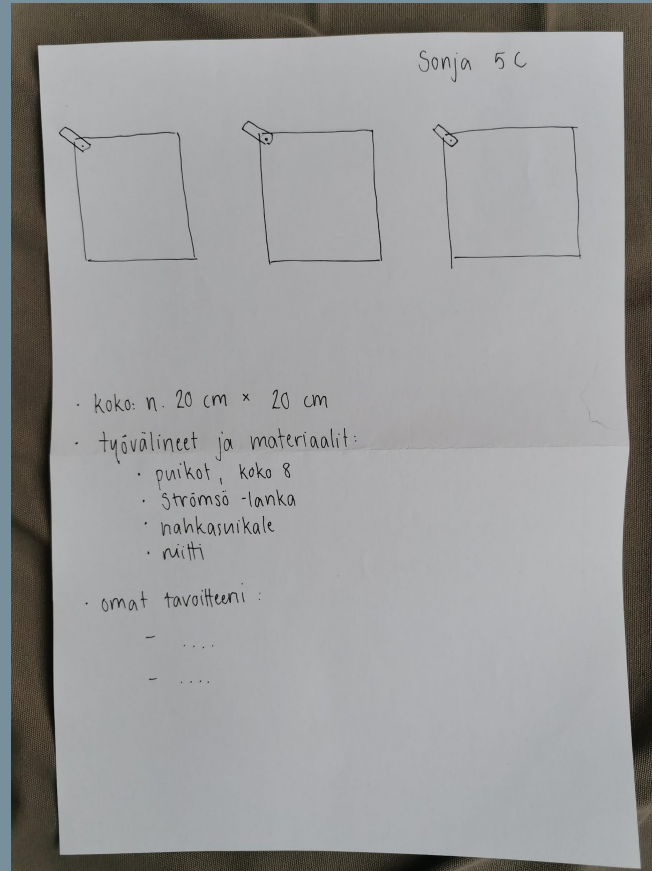 Sonja 5C
· koko: n. 20 cm × 20 cm
· työvälineet ja materiaalit:
· puikot, koko 8
· Strömsö -lanka
· nahkasuikale
· niitti
· omat tavoitteeni :
- ....
- ....